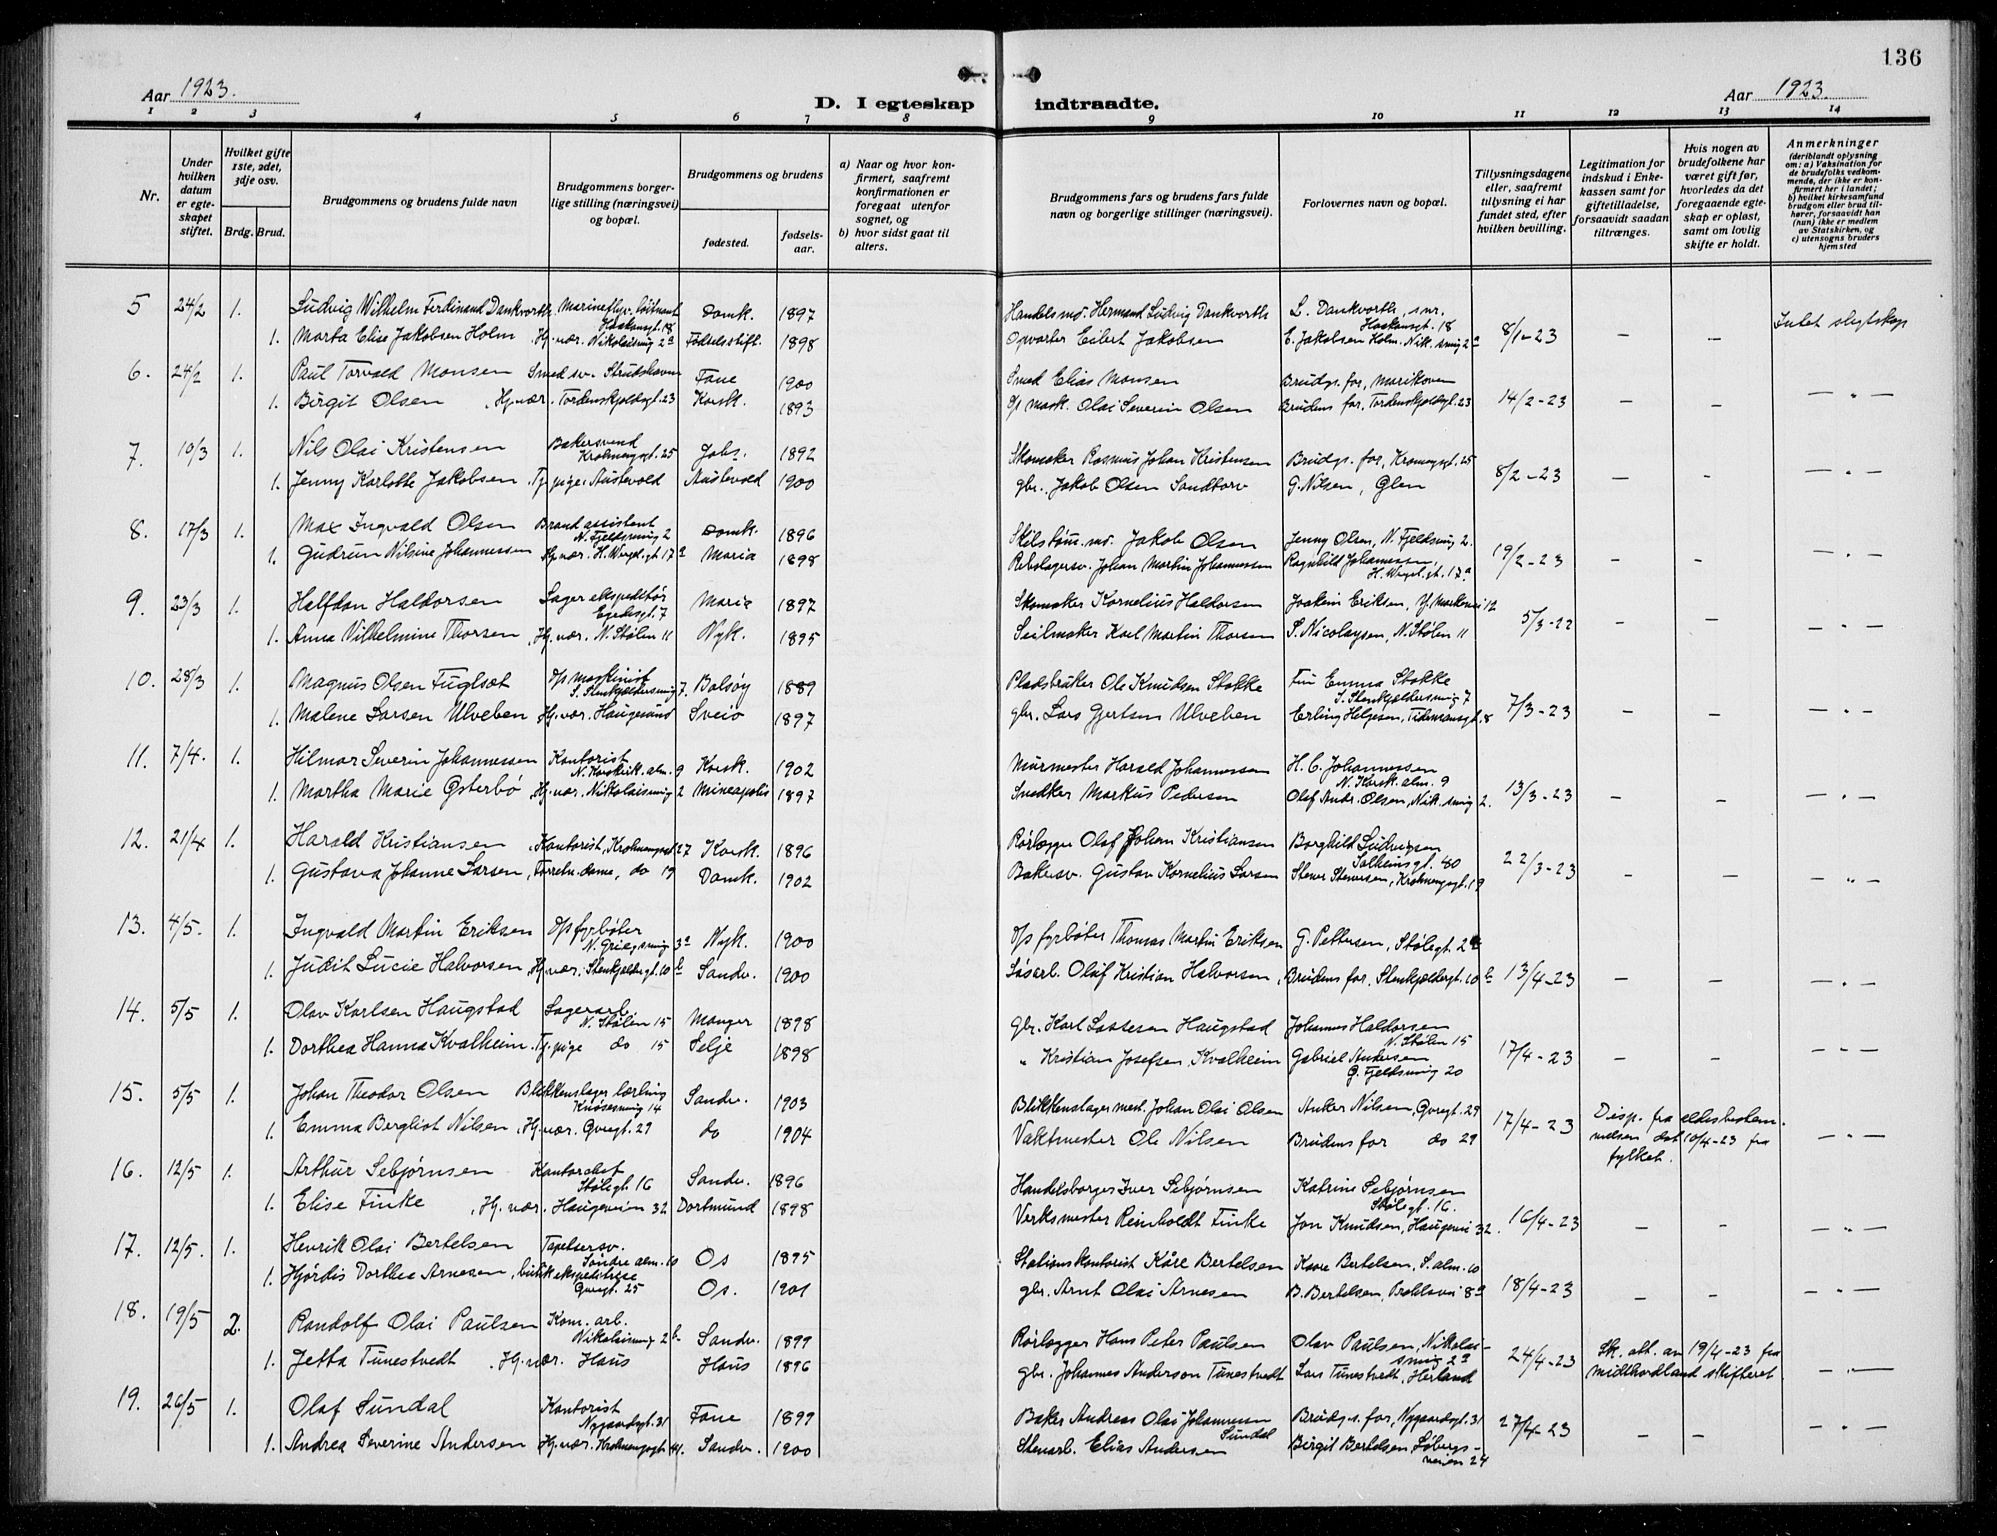 136
Aar 1923.
D. I egteskap indtraadte.
Aar 1923.
1 2 3 4 5 6 7 8 9 10 11 12 13 14
Nr.
Under hvilken datum er egteskapet stiftet.
Hvilket gifte 1ste, 2det, 3dje osv.
Brdg. Brud.
Brudgommens og brudens fulde navn
Brudgommens borgerlige stilling (næringsvei) og bopæl.
Brudgommens og brudens
fødested.
fødselsaar.
a) Naar og hvor konfirmert, saafremt konfirmationen er foregaat utenfor sognet, og
b) hvor sidst gaat til alters.
Brudgommens fars og brudens fars fulde navn og borgerlige stillinger (næringsvei).
Forlovernes navn og bopæl.
Tillysningsdagene eller, saafremt tillysning ei har fundet sted, efter hvilken bevilling.
Legitimation for indskud i Enkekassen samt for giftetilladelse, forsaavidt saadan tiltrænges.
Hvis nogen av brudefolkene har været gift før, hvorledes da det foregaaende egteskap er opløst, samt om lovlig skifte er holdt.
Anmerkninger
(deriblandt oplysning om: a) Vaksination for de brudefolks vedkommende, der ikke er konfirmert her i landet; b) hvilket kirkesamfund brudgom eller brud tilhører, forsaavidt han (hun) ikke er medlem av Statskirken, og c) utensogns bruders hjemsted
5 24/2 1. Ludvig Wilhelm Ferdinand Dankvorth Marineflyv. løitnant Haakonsgt. 18 Domk. 1897 Handelsmd. Hermand Ludvig Dankvorth L. Dankvorth, snr. Haakonsgt. 18 Intet slegtskap
1. Marta Elise Jakobsen Holm Hj. vær. Nikolaismug 2a Fødselsstift. 1898 Opvarter Eilert Jakobsen E. Jakobsen Holm. Nik. smug 2a 8/1-23 — —
6. 24/2 1. Paul Torvald Monsen Smed sv. Strudshavn Fane 1900 Smed Elias Monsen Brudgs. far, Marikoven
1. Birgit Olsen Hj. vær. Tordenskjoldsgt. 23 Korsk. 1893 d/s mask. Olai Severin Olsen Brudens far, Tordenskjoldsgt. 23 14/2-23 — — — " —
7. 10/3 1. Nils Olai Kristensen Bakersvend Krohnengsgt. 25 Johs. 1892 Skomaker Rasmus Johan Kristensen Brudgs. far, Kronengsgt. 25
1. Jenny Karlotte Jakobsen Tj. pige, Austevold Austevold 1900 gbr. Jakob Olsen Sandtorv G. Nilsen, Glen 8/2-23 — - — " —
8. 17/3 1. Max Ingvald Olsen Brand assistent N. Fjeldsmug 2 Domk. 1896 Skilstøm. md. Jakob Olsen Jenny Olsen, N. Fjeldsmug 2.
1. Gudrun Nilsine Johannessen Hj. vær. H. Wergl. gt. 17a Maria 1898 Rebslagersv. Johan Martin Johannessen Ragnhild Johannessen, H. Wergel. gt. 17a 19/2-23 — — — " —
9. 23/3 1. Halfdan Haldorsen Lager ekspeditør Egedesgt. 7 Maria 1897 Skomaker Kornelius Haldorsen Joakim Eriksen, Y. Markevei 12
1. Anna Vilhelmine Thorsen Hj. vær. N. Stølen 11 Nyk. 1895 Seilmaker Karl Martin Thorsen S. Nicolaysen, N. Stølen 11 5/3-22 — — — " —
10. 28/3 1. Magnus Olsen Fuglsæt d/s maskinist S. Stenkjeldersmug 7. Bolsøy 1889 Pladsbruker Ole Knudsen Stokke Fru Emma Stokke S. Stenkjeldersmug 7
1. Malene Larsen Ulveben Hj. vær. Haugesund Sveio 1897 gbr. Lars Gjertsen Ulveben Erling Helgesen, Tidemansgt. 8 7/3-23 — — — " —
11. 7/4. 1. Hilmar Severin Johannessen Kontorist N. Korskirk. alm. 9 Korsk. 1902 Murmester Harald Johannessen H. C. Johannessen N. Korsk. alm. 9
1. Martha Marie Østerbø Hj. vær. Nikolaismug 2 Mineapolis 1897 Snedker Markus Pedersen Olaf Andr. Olsen, Nik. smug 2. 13/3-23 — — — " —
12. 21/4 1. Harald Kristiansen Kontorist, Krohnengsgt 27 Korsk. 1896 Rørlægger Olaf Johan Kristiansen Borghild Ludvigsen Solheimsgt. 40
1. Gustava Johanne Larsen, Forretn. dame, do 19 Domk. 1902 Bakersv. Gustav Kornelius Larsen Stener Stenersen, Krohnengsgt. 19 22/3-23 — — — " —
13. 4/5. 1. Ingvald Martin Eriksen d/s fyrbøter N. Griegsmug 3a Nyk. 1900 d/s fyrbøter Thomas Martin Eriksen G. Pettersen, Stølegt. 2a
1. Judit Lucie Halvorsen Hj. vær. Stenkjeldergt. 10 b Sandv. 1900 Løsarb. Olaf Kristian Halvorsen Brudens far, Stenkjeldergt. 10 b 13/4-23 — — — " —
14. 5/5 1. Olav Karlsen Haugstad Lagerarb. N. Stølen 15 Manger 1898 gbr. Karl Lassesen Haugstad Johannes Haldorsen N. Stølen 15
1. Dorthea Hanna Kvalheim Tj. pige do 15 Selje 1898 " Kristian Josefsen Kvalheim Gabriel Andersen Ø. Fjeldsmug 20 17/4-23 — — — " —
15. 5/5 1. Johan Theodor Olsen Blikkenslager lærling Knøsesmug 14 Sandv. 1903 Blikkenslagermest. Johan Olai Olsen Anker Nilsen, Øvregt. 29
1. Emma Bergliot Nilsen Hj. vær. Øvregt. 29 do 1904 Vaktmester Ole Nilsen Brudens far do 29 17/4-23 Disp. fra aldesbestemmelsen dat. 10/4-23 fra fylket. — " —
16. 12/5 1. Arthur Sebjørnsen Kontorchef Stølegt. 16 Sandv. 1896 Handelsborger Iver Sebjørnsen Katrine Sebjørnsen Stølegt. 16.
1. Elise Finke Hj. vær. Haugeveien 32 Dortmund 1898 Verksmester Reinholdt Finke Jon Knudsen, Haugevei 32. 16/4-23 — — — " —
17. 12/5. 1. Henrik Olai Bertelsen Tapetsersv. Søndre alm. 10 Os 1895 Stationskontorist Kåre Bertelsen Kaare Bertelsen, S. alm. 10
1. Hjørdis Dorthea Arnesen butik ekspeditrise Øvregt. 25 Os. 1901 gbr. Arnt Olai Arnesen B. Bertelsen, 8a 18/4-23 — — — " —
18. 19/5 2. Randolf Olai Paulsen Kom. arb. Nikolaismug 2 b Sandv. 1899 Rørlægger Hans Peter Paulsen Olav Paulsen, Nikolaismug 2a
1. Jetta Tunestvedt Hj. vær. Haus Haus 1896 gbr. Johannes Anderson Tunestvedt Lars Tunestvedt, Herland 24/4-23 Sk. att. av 19/4-23 fra midthordland skifteret — " —
19. 26/5 1. Olaf Sundal Kontorist Nygaardsgt. 31 Fane 1899 Baker Andreas Olai Johannesen Sundal Brudgs. far, Nygaardsgt. 31
1. Andrea Severine Andersen Hj. vær. Krohnengsgt 41. Sandv. 1900 Stenarb. Elias Andersen Birgit Bertelsen, Løbergsveien 24 27/4-23 — — — " —